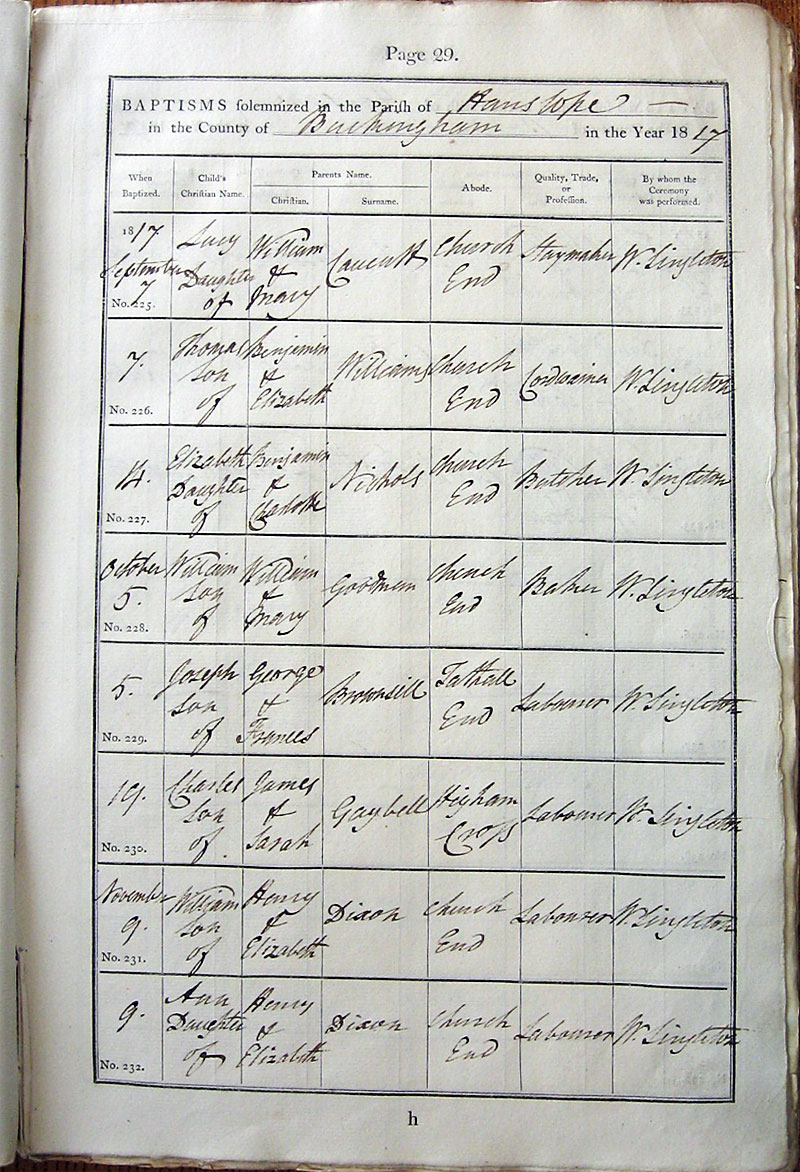 Page 29.
BAPTISMS solemnized in the Parish of Hanslope
in the County of Buckingham in the Year 1817
When Baptized. Child's Christian Name. Parents Name. Christian. Surname. Abode. Quality, Trade, or Profession. By whom the Ceremony was performed.
1817 September 7 No. 225. Lucy Daughter of William & Mary Church End Staymaker W. Singleton
7. No. 226. Thomas Son of Benjamin & Elizabeth Williams Church End Cordwainer W. Singleton
14. No. 227. Elizabeth Daughter of Benjamin & Charlotte Nichols Church End Butcher W. Singleton
October 5. No. 228. William Son of William & Mary Goodman Church End Baker W. Singleton
5. No. 229. Joseph Son of George & Frances Brownsill Tathall End Labourer W. Singleton
19. No. 230. Charles Son of James & Sarah Gaybell Higham Cross Labourer W. Singleton
November 9. No. 231. William Son of Henry & Elizabeth Dixon Church End Labourer W. Singleton
9. No. 232. Ann Daughter of Henry & Elizabeth Dixon Church End Labourer W. Singleton
h